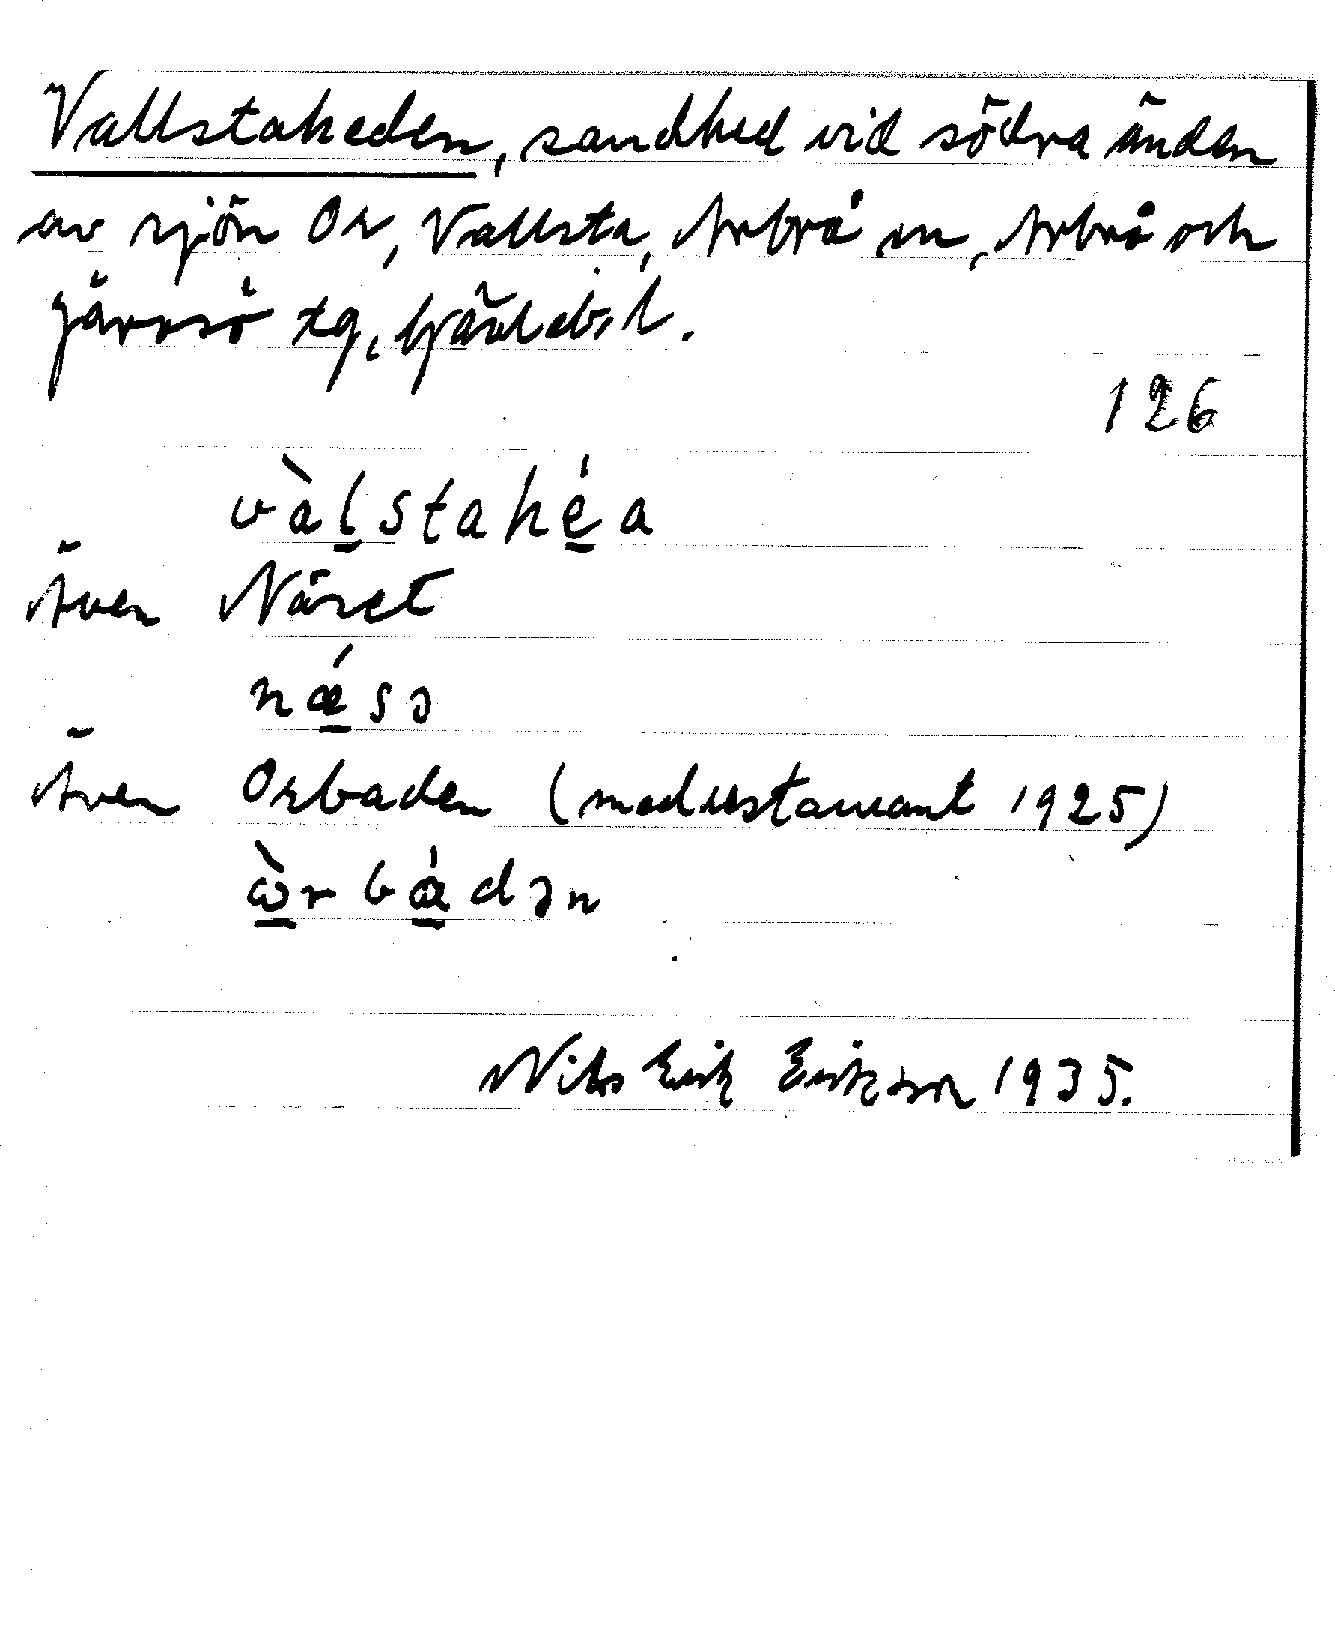 Vallstaheden, sandhed vid södra änden
av sjön Or, Vallsta, Arbrå sn, Arbrå och
Järvsö tg, Gävleb. l.
126
vàl̠stahé̠a
Även Näset
nǽ̠sɔ
Även Orbaden (med restaurant 1925)
ɷ̠̀rbɑ̠́dən
Nils Erik Erikson 1935.